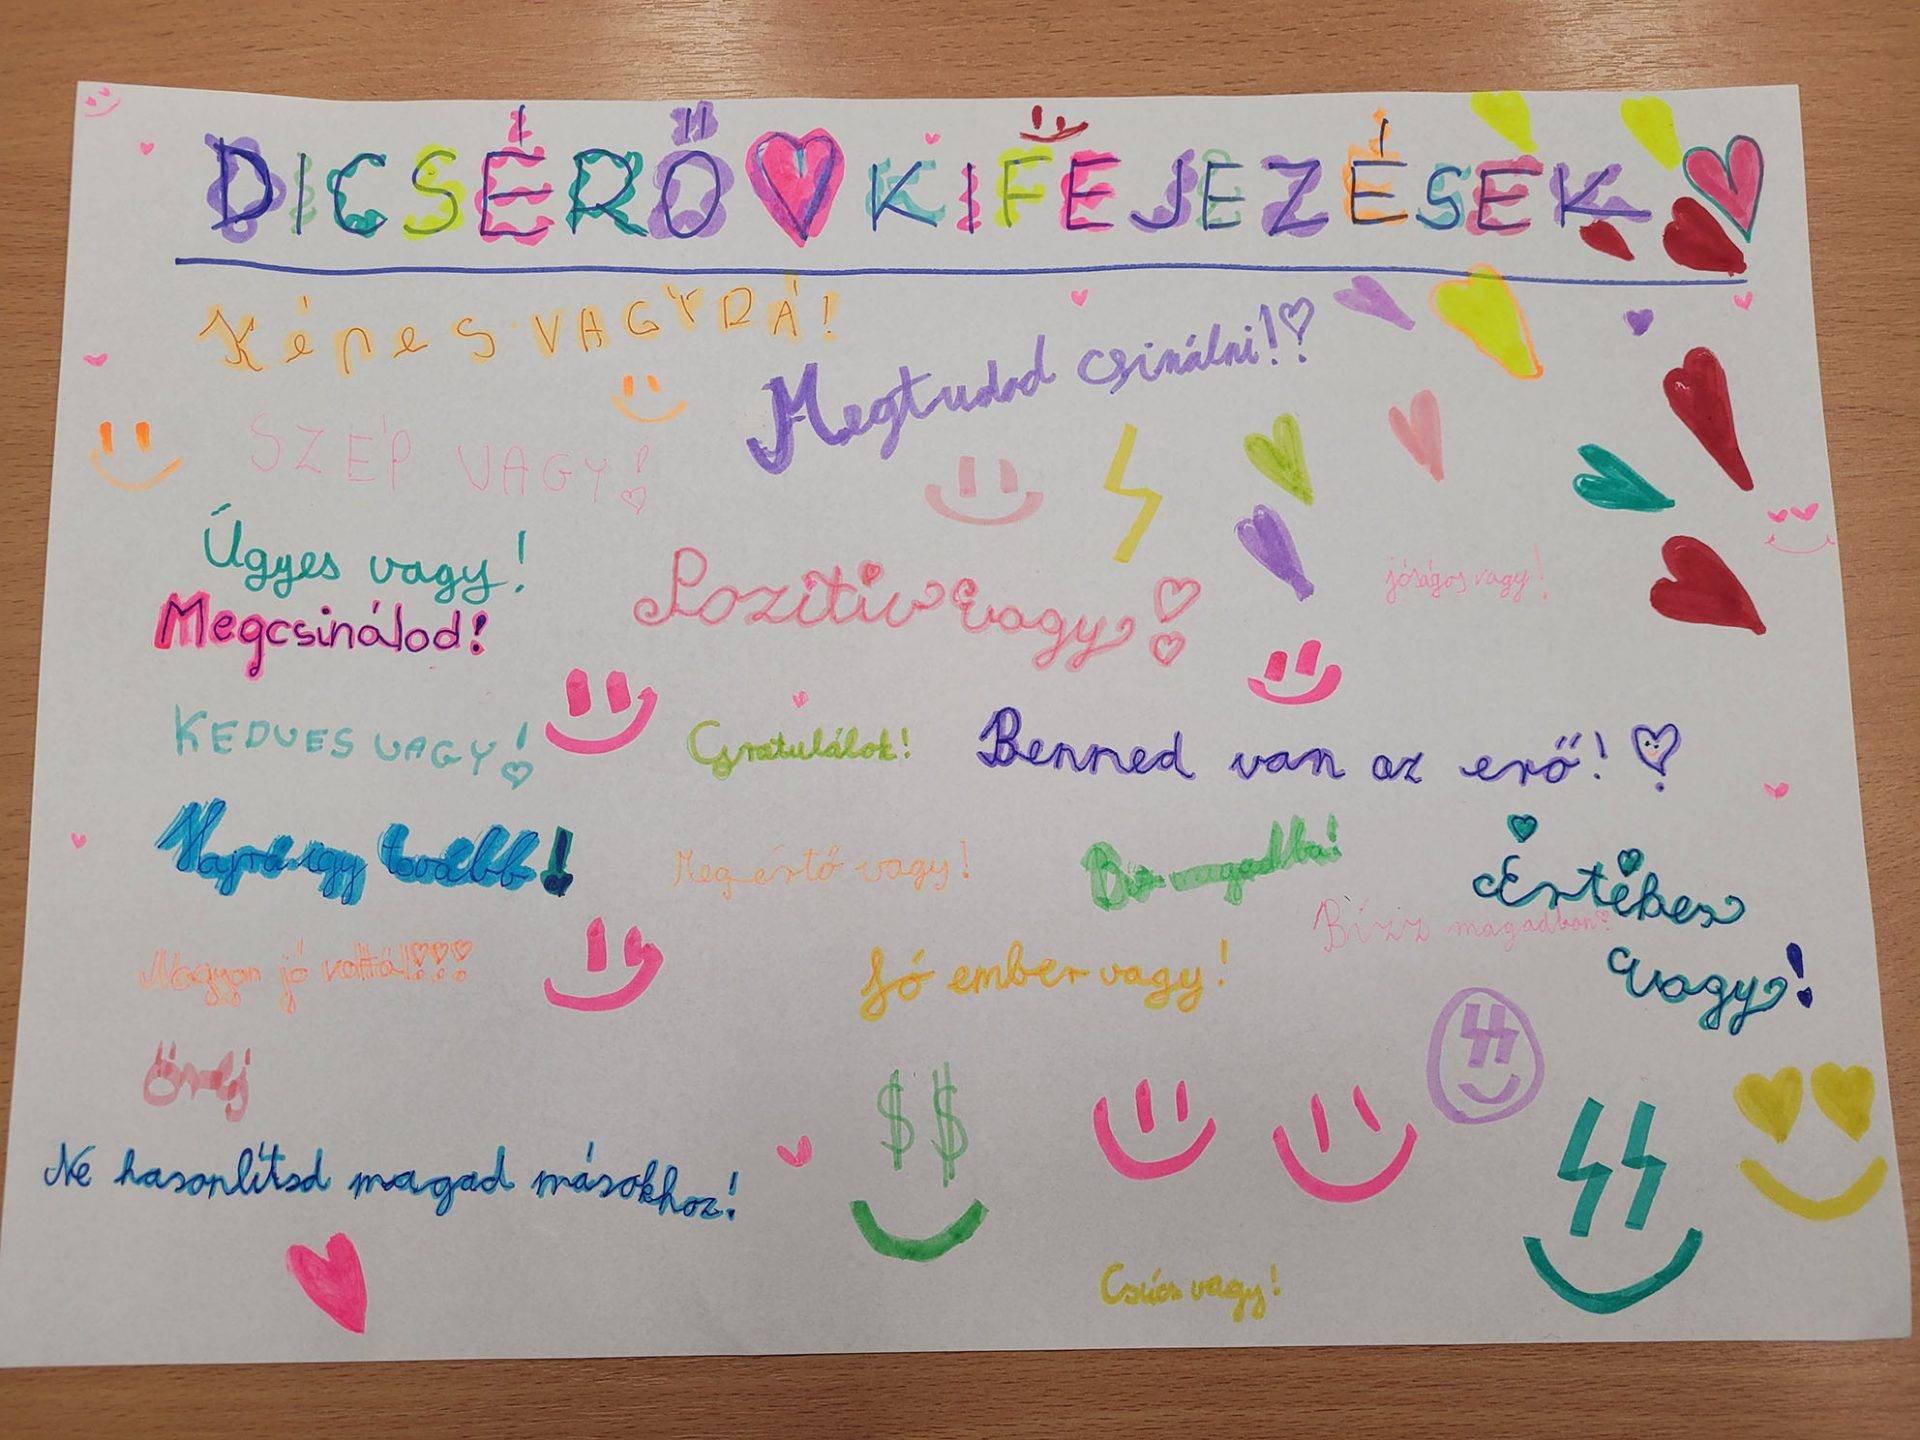 DICSÉRŐ KIFEJEZÉSEK
Képes VAGY RÁ!
Megtudod csinálni!
SZÉP VAGY!
Ügyes vagy!
Pozitív vagy!
jóságos vagy!
Megcsinálod!
KEDVES VAGY!
Gratulálok!
Benned van az erő!
Hajrá így tovább!
Megértő vagy!
Bíz magadba!
Értékes
vagy!
Bízz magadban!
Nagyon jó voltál!!!
Jó ember vagy!
$ $
Ne hasonlítsd magad másokhoz!
Csúcs vagy!